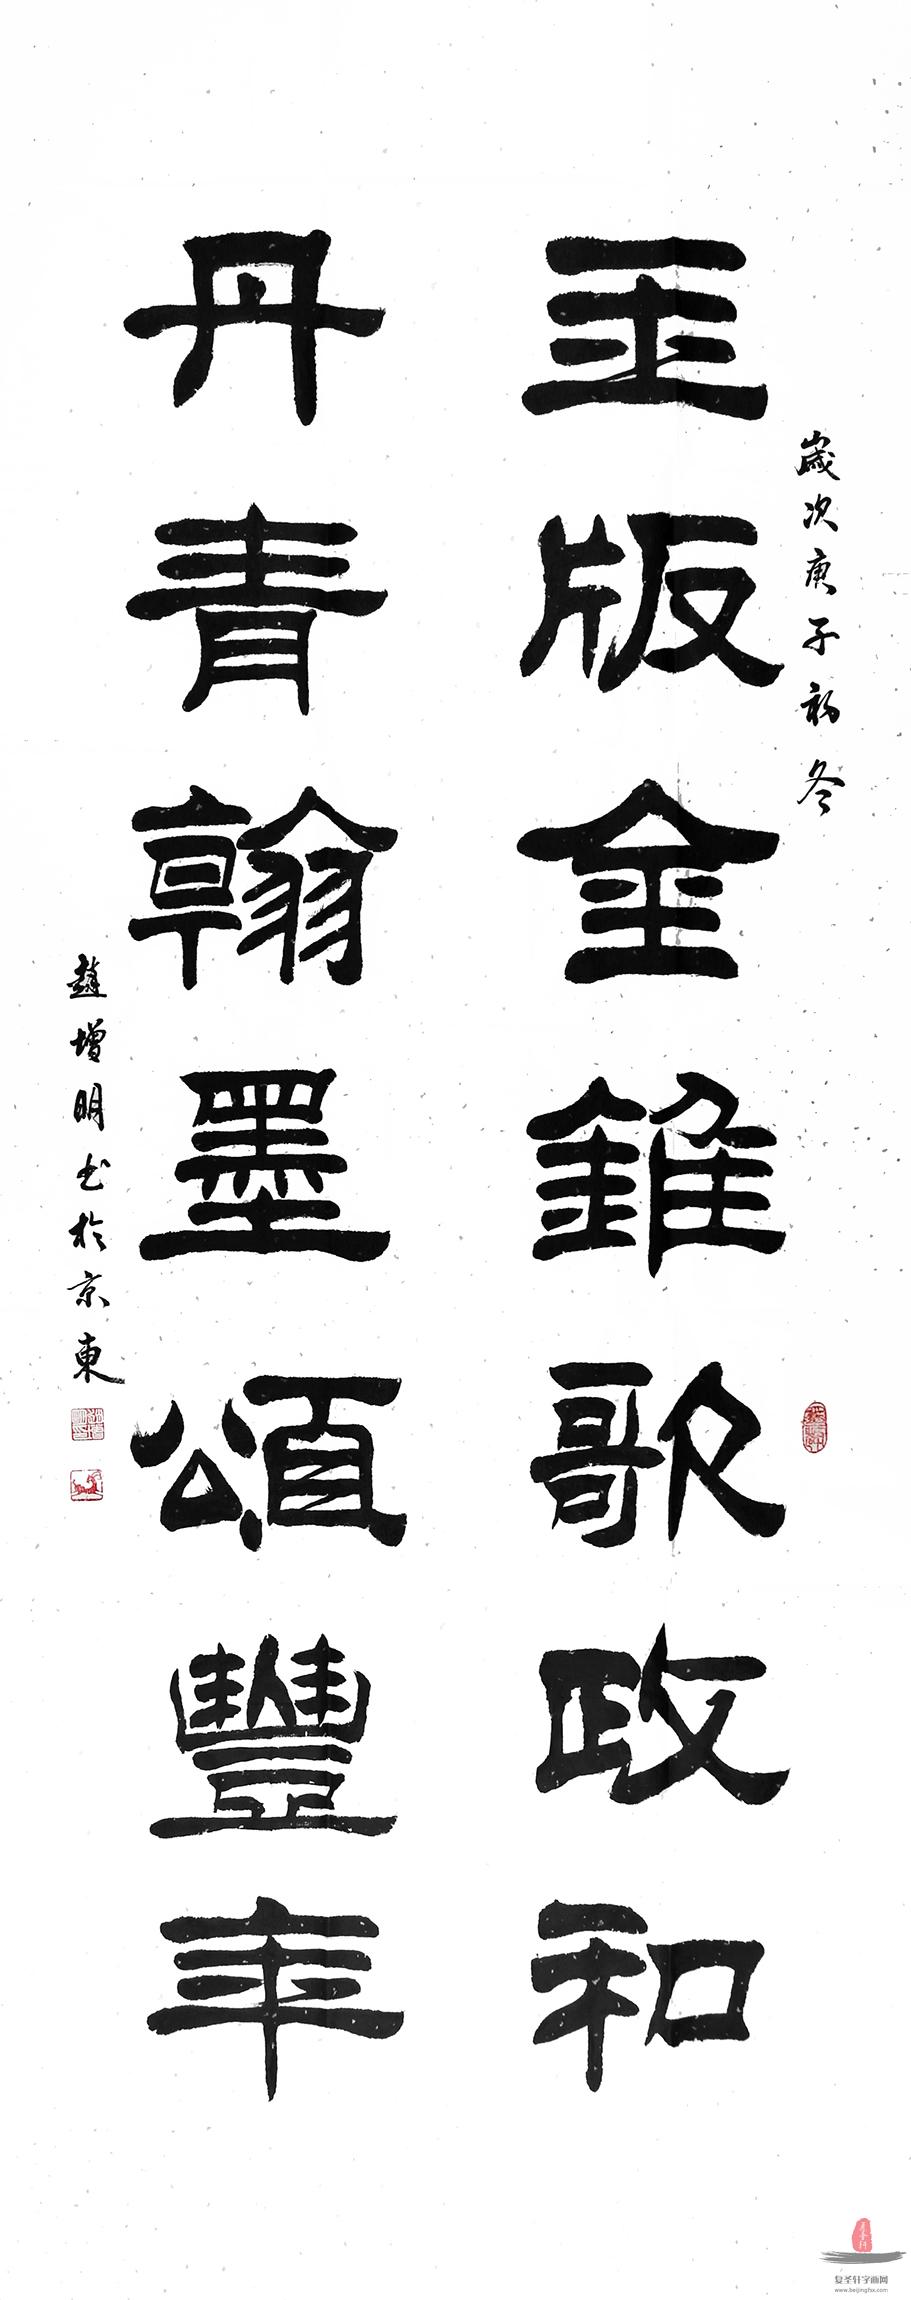 歲次庚子初冬
玉版金錐歌政和
丹青翰墨頌豐年
趙增明书於京東
复圣轩字画网